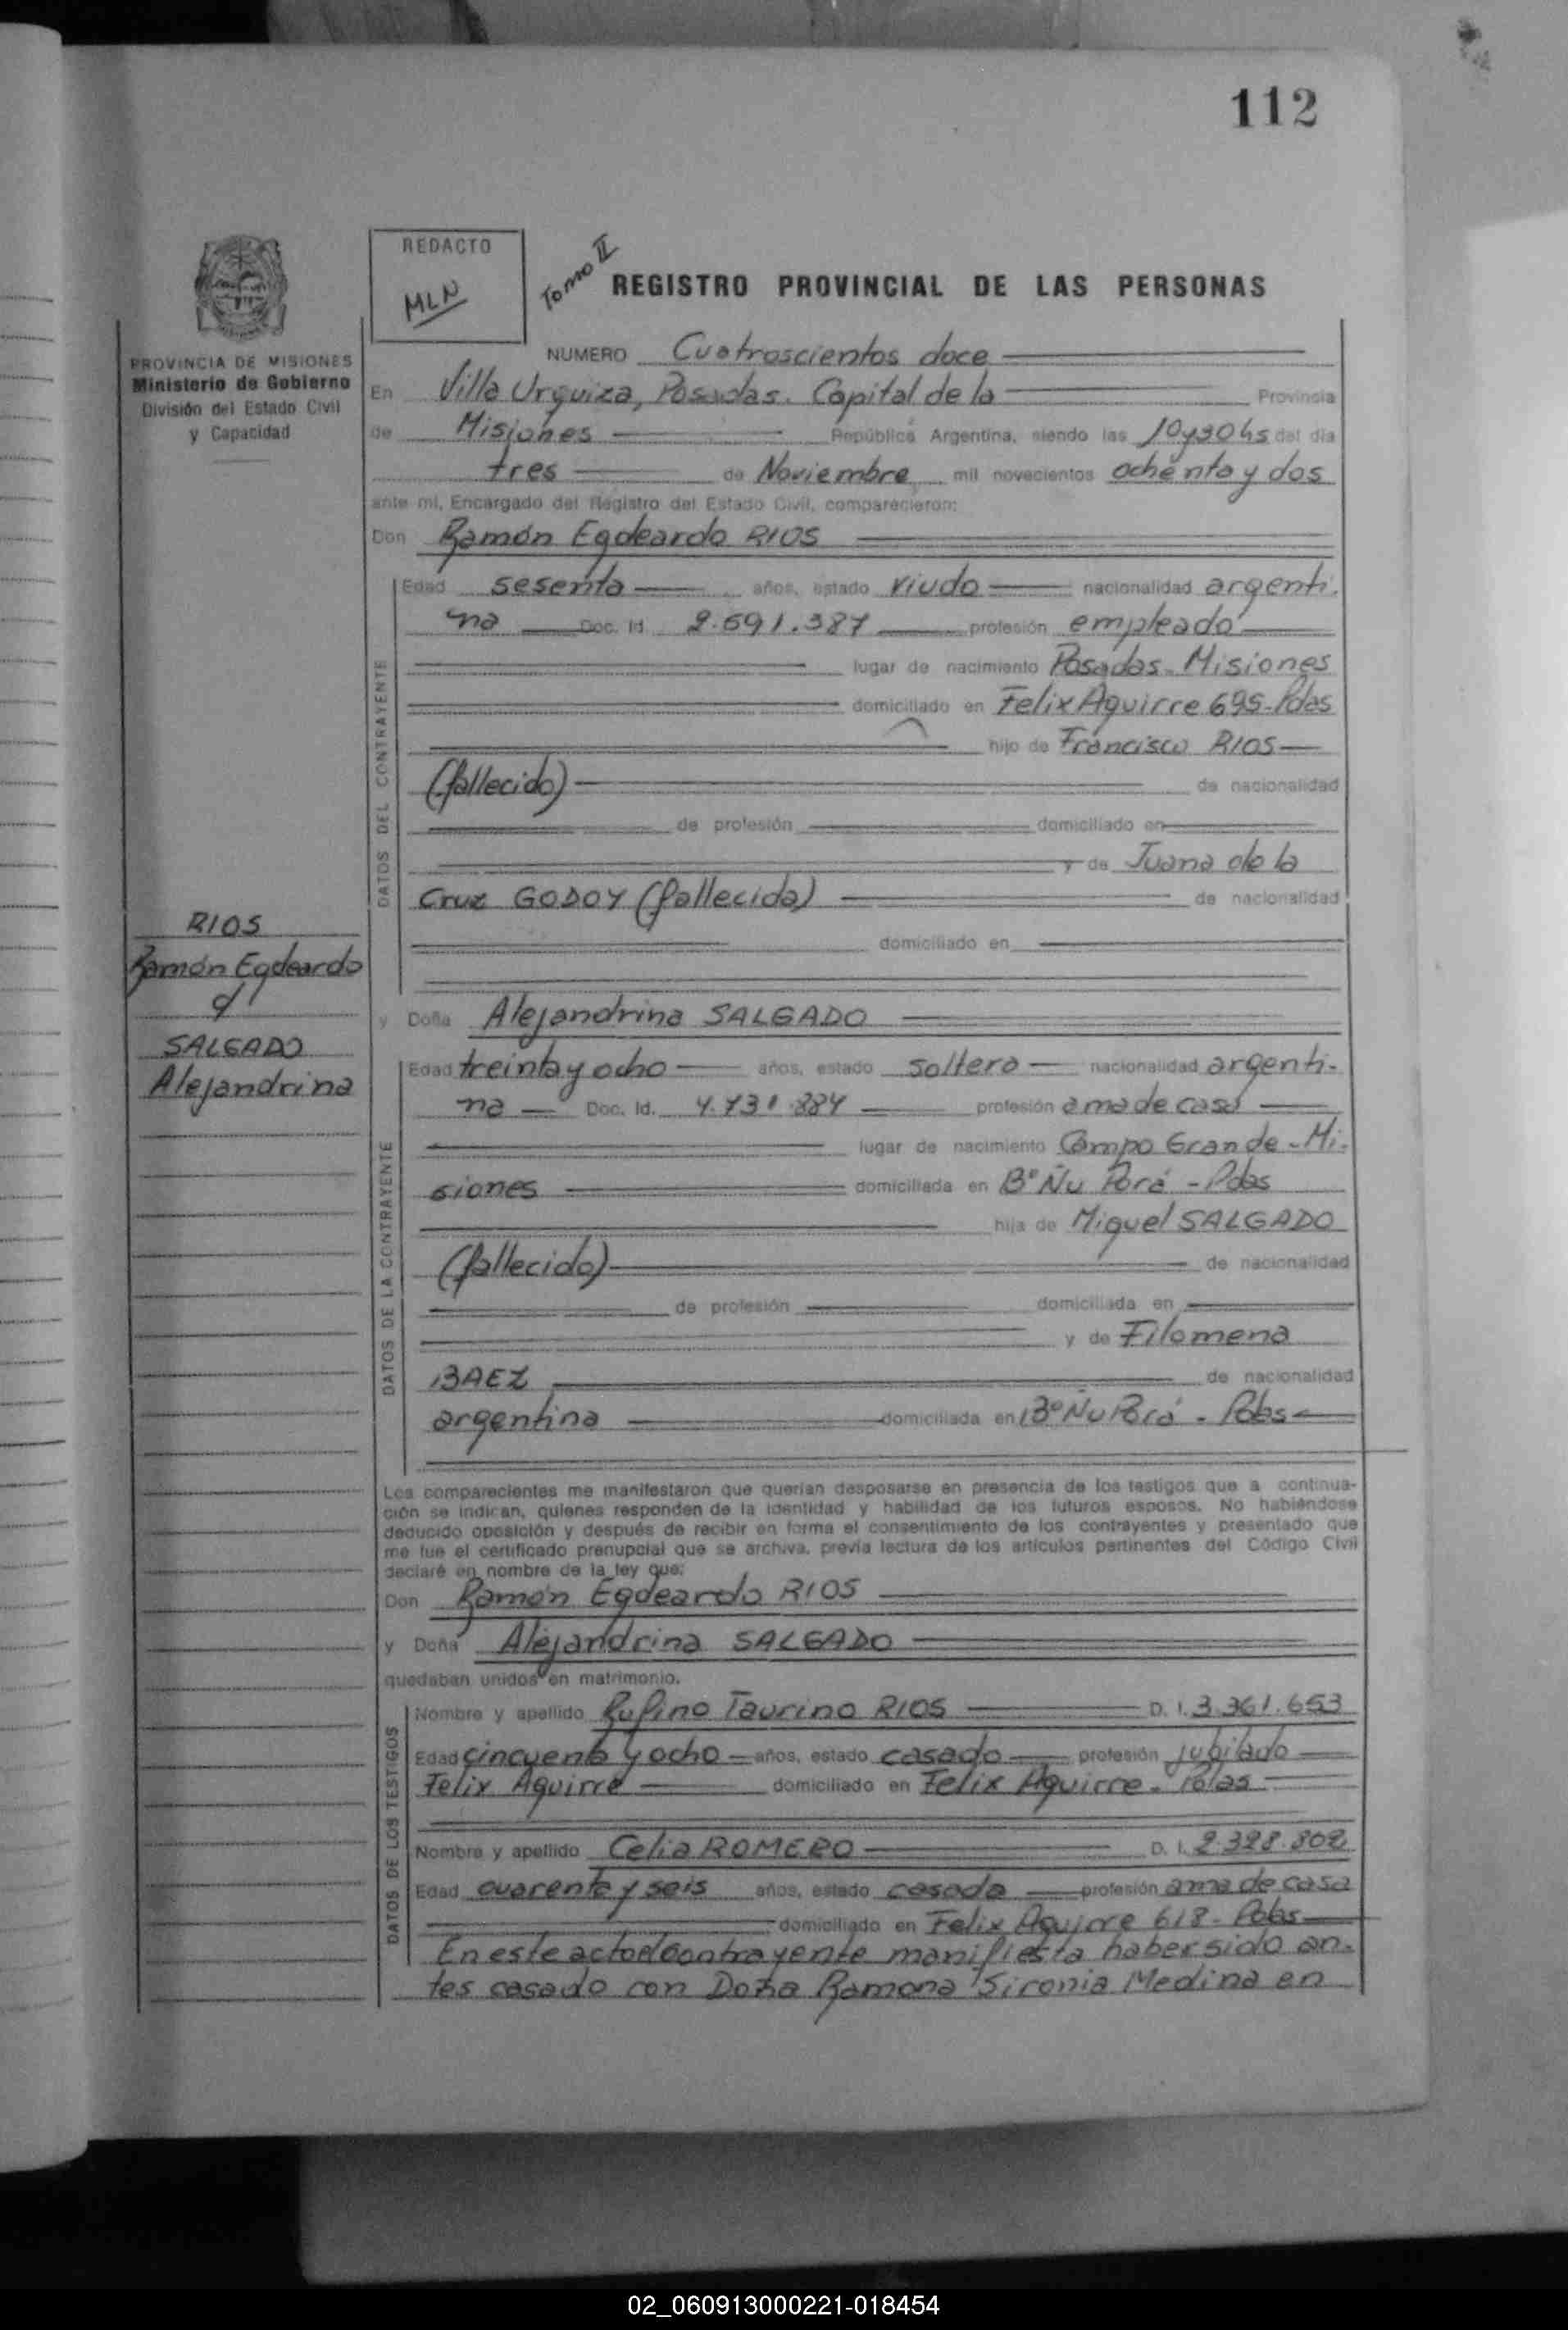 112
REDACTO
MLN
Tomo II
REGISTRO PROVINCIAL DE LAS PERSONAS
PROVINCIA DE MISIONES
Ministerio de Gobierno
División del Estado Civil
y Capacidad
NUMERO Cuatroscientos doce
En Villa Urquiza, Posadas. Capital de la Provincia
de Misiones República Argentina, siendo las 10y30hs del día
tres de Noviembre mil novecientos ochenta y dos
ante mí, Encargado del Registro del Estado Civil, comparecieron:
Don Ramón Egdeardo RIOS
DATOS DEL CONTRAYENTE
Edad sesenta años, estado viudo nacionalidad argenti-
na Doc. Id. 2.591.387 profesión empleado
lugar de nacimiento Posadas-Misiones
domiciliado en Felix Aguirre 695-Pdas
hijo de Francisco RIOS
(fallecido) de nacionalidad
de profesión domiciliado en
y de Juana de la
Cruz GODOY (fallecida) de nacionalidad
domiciliado en
RIOS
Ramón Egdeardo
c/
SALGADO
Alejandrina
y Doña Alejandrina SALGADO
DATOS DE LA CONTRAYENTE
Edad treinta y ocho años, estado soltera nacionalidad argenti-
na Doc. Id. 4.731.884 profesión ama de casa
lugar de nacimiento Campo Grande-Mi-
siones domiciliada en B° Ñu Porá - Pdas
hija de Miguel SALGADO
(fallecido) de nacionalidad
de profesión domiciliada en
y de Filomena
BAEZ de nacionalidad
argentina domiciliada en B° Ñu Porá - Pdas
Los comparecientes me manifestaron que querían desposarse en presencia de los testigos que a continua-
ción se indican, quienes responden de la identidad y habilidad de los futuros esposos. No habiéndose
deducido oposición y después de recibir en forma el consentimiento de los contrayentes y presentado que
me fue el certificado prenupcial que se archiva, previa lectura de los artículos pertinentes del Código Civil
declaré en nombre de la ley que:
Don Ramón Egdeardo RIOS
y Doña Alejandrina SALGADO
quedaban unidos en matrimonio.
DATOS DE LOS TESTIGOS
Nombre y apellido Rufino Taurino RIOS D. I. 3.361.653
Edad cincuenta y ocho años, estado casado profesión jubilado
Felix Aguirre domiciliado en Felix Aguirre - Pdas
Nombre y apellido Celia ROMERO D. I. 2.328.802
Edad cuarenta y seis años, estado casada profesión ama de casa
domiciliado en Felix Aguirre 618- Pdas
En este acto el contrayente manifiesta haber sido an-
tes casado con Doña Ramona Sironia Medina en
02_060913000221-018454